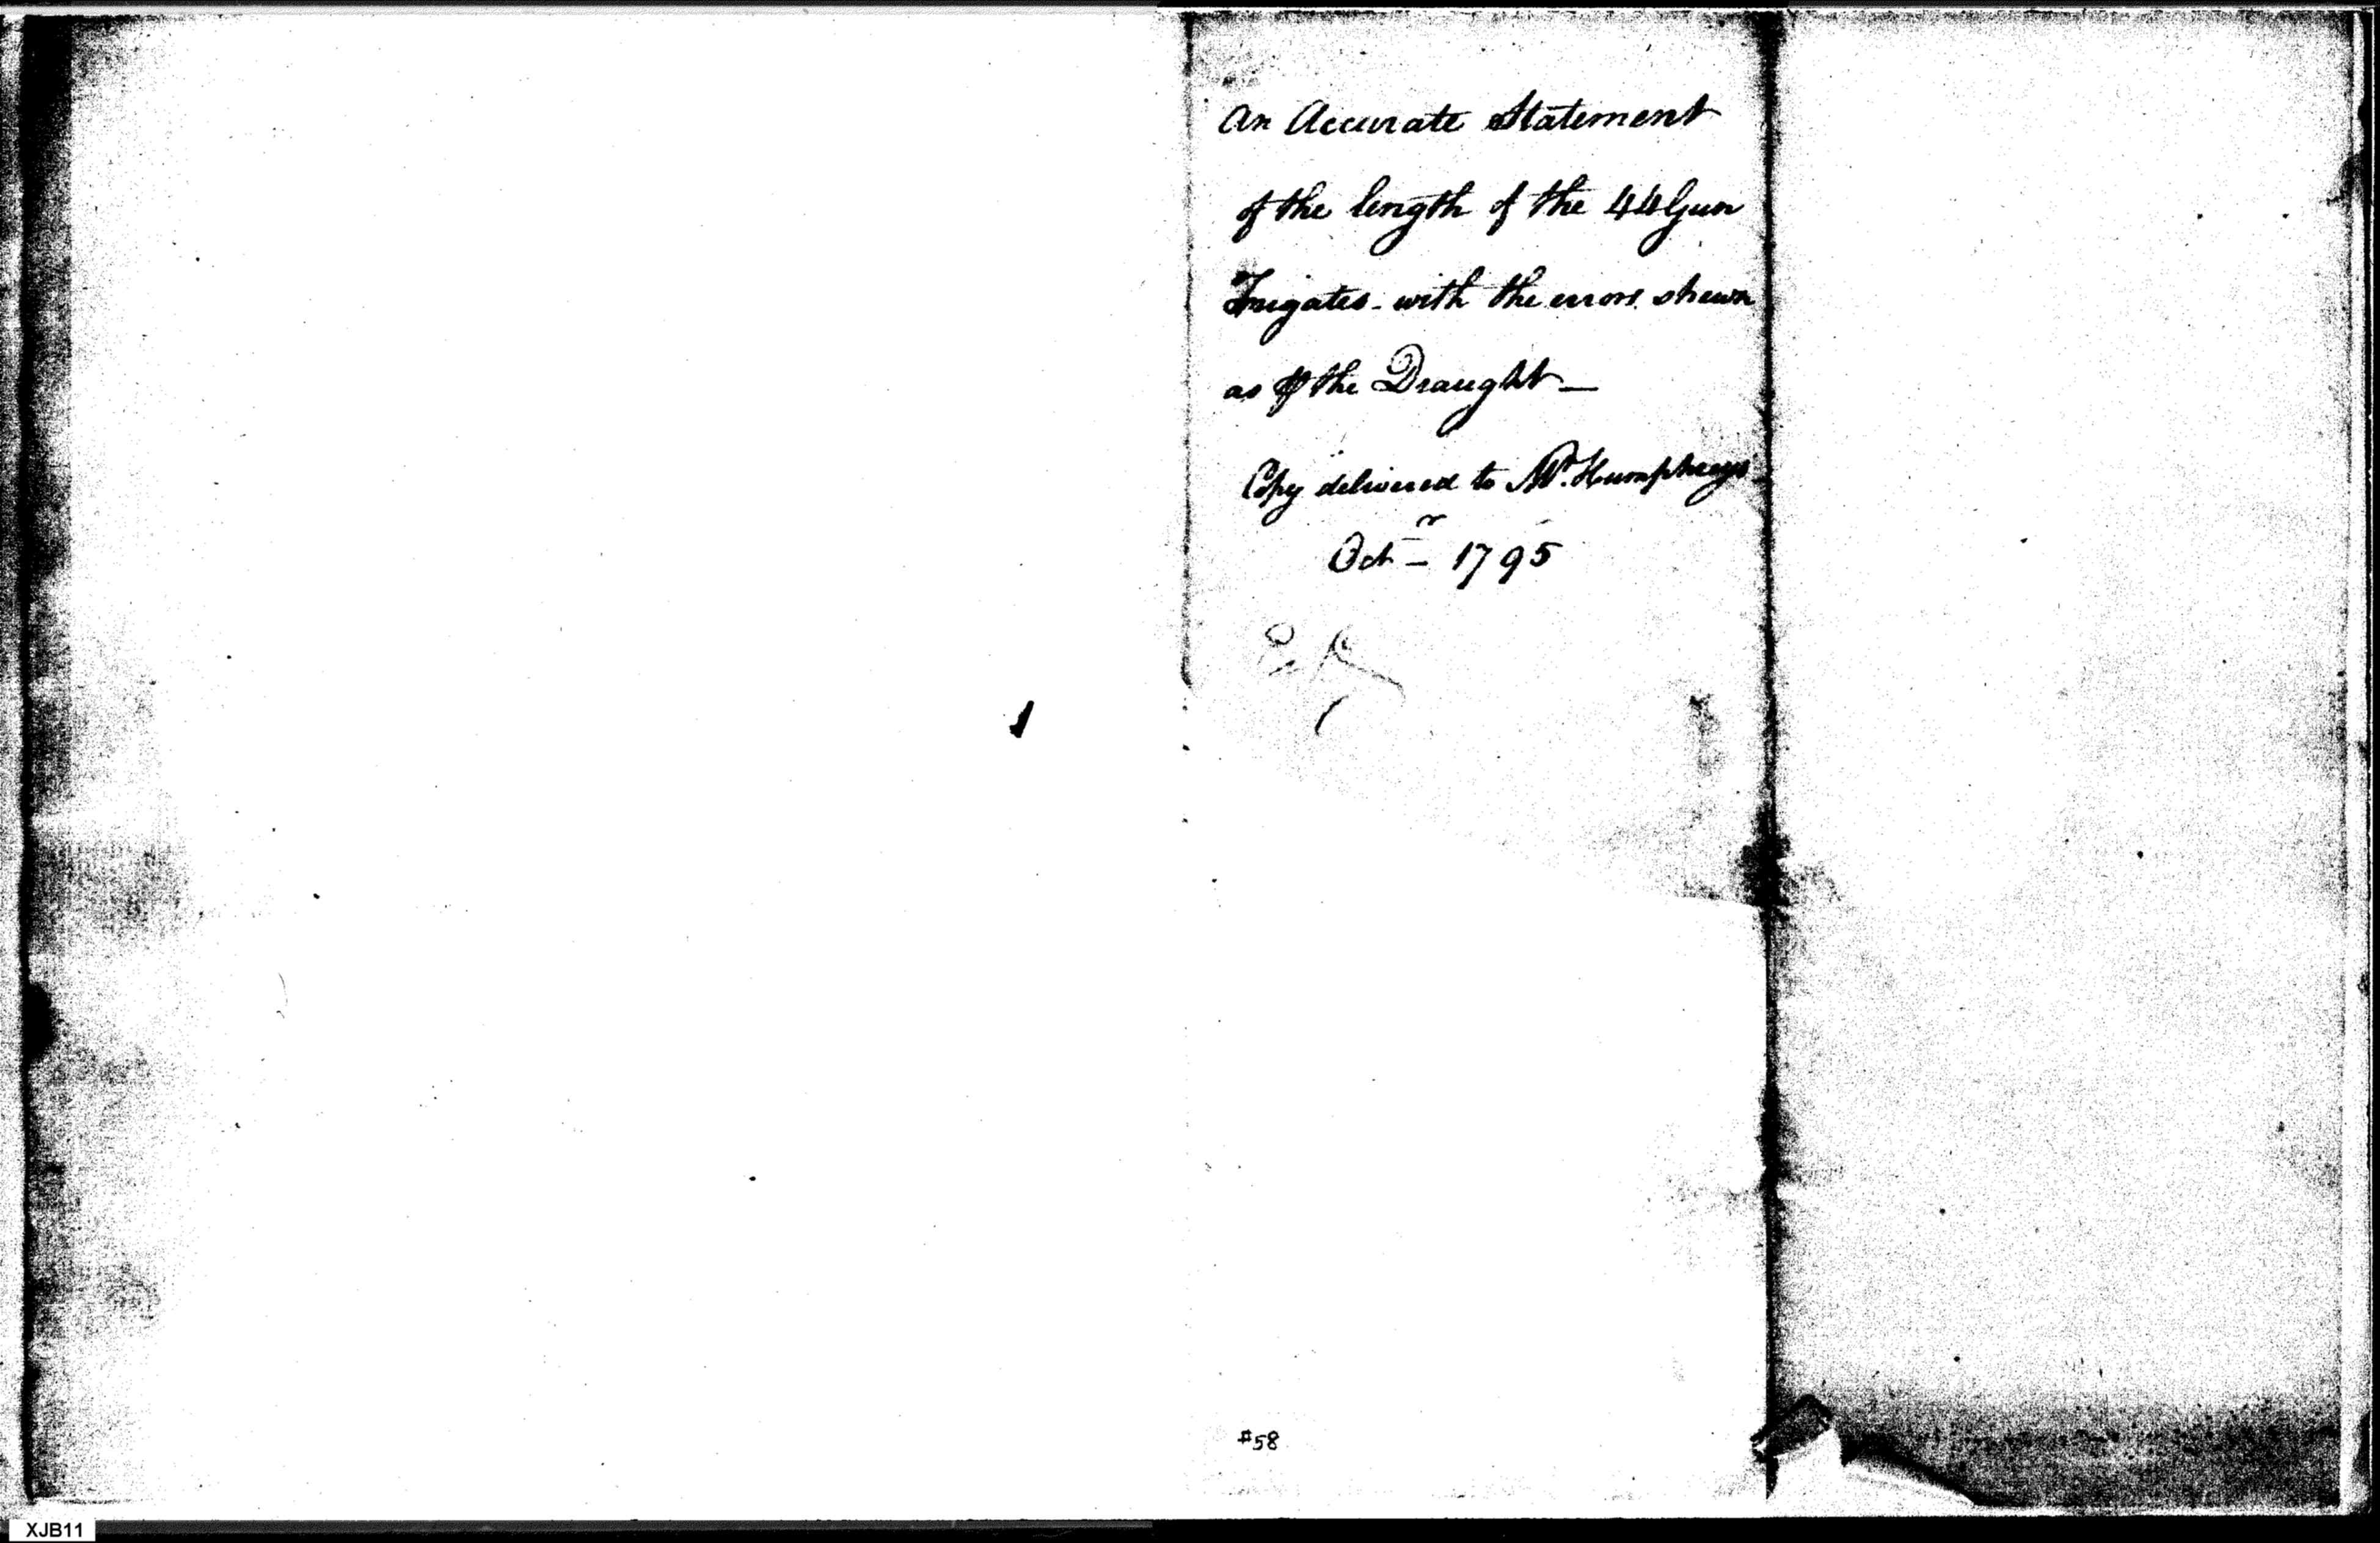 An Accurate Statement
of the length of the 44 Gun
Frigates - with the errors shewn
as ⅌ the Draught —
Copy delivered to Mr. Humphreys
Octr — 1795
#58
XJB11